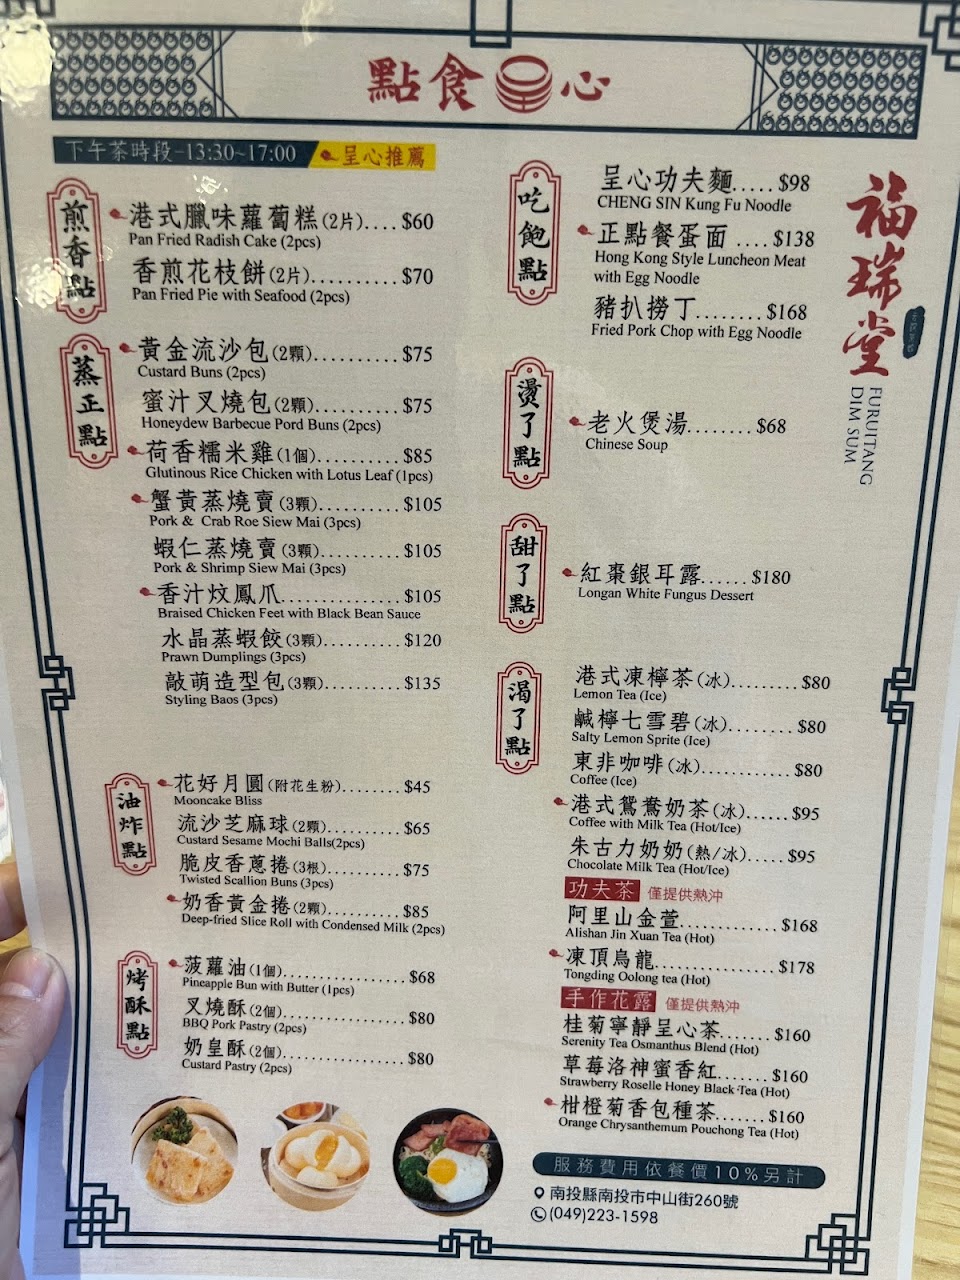 點食呈心
下午茶時段-13:30~17:00 呈心推薦
煎香點
港式臘味蘿蔔糕(2片)....$60
Pan Fried Radish Cake (2pcs)
香煎花枝餅(2片)..........$70
Pan Fried Pie with Seafood (2pcs)
蒸正點
黃金流沙包(2顆)..........$75
Custard Buns (2pcs)
蜜汁叉燒包(2顆)..........$75
Honeydew Barbecue Pord Buns (2pcs)
荷香糯米雞(1個)..........$85
Glutinous Rice Chicken with Lotus Leaf (1pcs)
蟹黃蒸燒賣(3顆)..........$105
Pork & Crab Roe Siew Mai (3pcs)
蝦仁蒸燒賣(3顆)..........$105
Pork & Shrimp Siew Mai (3pcs)
香汁炆鳳爪..............$105
Braised Chicken Feet with Black Bean Sauce
水晶蒸蝦餃(3顆)..........$120
Prawn Dumplings (3pcs)
敲萌造型包(3顆)..........$135
Styling Baos (3pcs)
油炸點
花好月圓(附花生粉)........$45
Mooncake Bliss
流沙芝麻球(2顆)..........$65
Custard Sesame Mochi Balls(2pcs)
脆皮香蔥捲(3根)..........$75
Twisted Scallion Buns (3pcs)
奶香黃金捲(2顆)..........$85
Deep-fried Slice Roll with Condensed Milk (2pcs)
烤酥點
菠蘿油(1個)................$68
Pineapple Bun with Butter (1pcs)
叉燒酥(2個)................$80
BBQ Pork Pastry (2pcs)
奶皇酥(2個)................$80
Custard Pastry (2pcs)
吃飽點
呈心功夫麵.....$98
CHENG SIN Kung Fu Noodle
正點餐蛋面 ....$138
Hong Kong Style Luncheon Meat
with Egg Noodle
豬扒撈丁........$168
Fried Pork Chop with Egg Noodle
燙了點
老火煲湯........$68
Chinese Soup
甜了點
紅棗銀耳露......$180
Longan White Fungus Dessert
渴了點
港式凍檸茶(冰).........$80
Lemon Tea (Ice)
鹹檸七雪碧(冰)........$80
Salty Lemon Sprite (Ice)
東非咖啡(冰)............$80
Coffee (Ice)
港式鴛鴦奶茶(冰)......$95
Coffee with Milk Tea (Hot/Ice)
朱古力奶奶(熱/冰).....$95
Chocolate Milk Tea (Hot/Ice)
功夫茶 僅提供熱沖
阿里山金萱.............$168
Alishan Jin Xuan Tea (Hot)
凍頂烏龍................$178
Tongding Oolong tea (Hot)
手作花露 僅提供熱沖
桂菊寧靜呈心茶.......$160
Serenity Tea Osmanthus Blend (Hot)
草莓洛神蜜香紅.......$160
Strawberry Roselle Honey Black Tea (Hot)
柑橙菊香包種茶.......$160
Orange Chrysanthemum Pouchong Tea (Hot)
服務費用依餐價10%另計
南投縣南投市中山街260號
(049)223-1598
福瑞堂
FURUITANG
DIM SUM